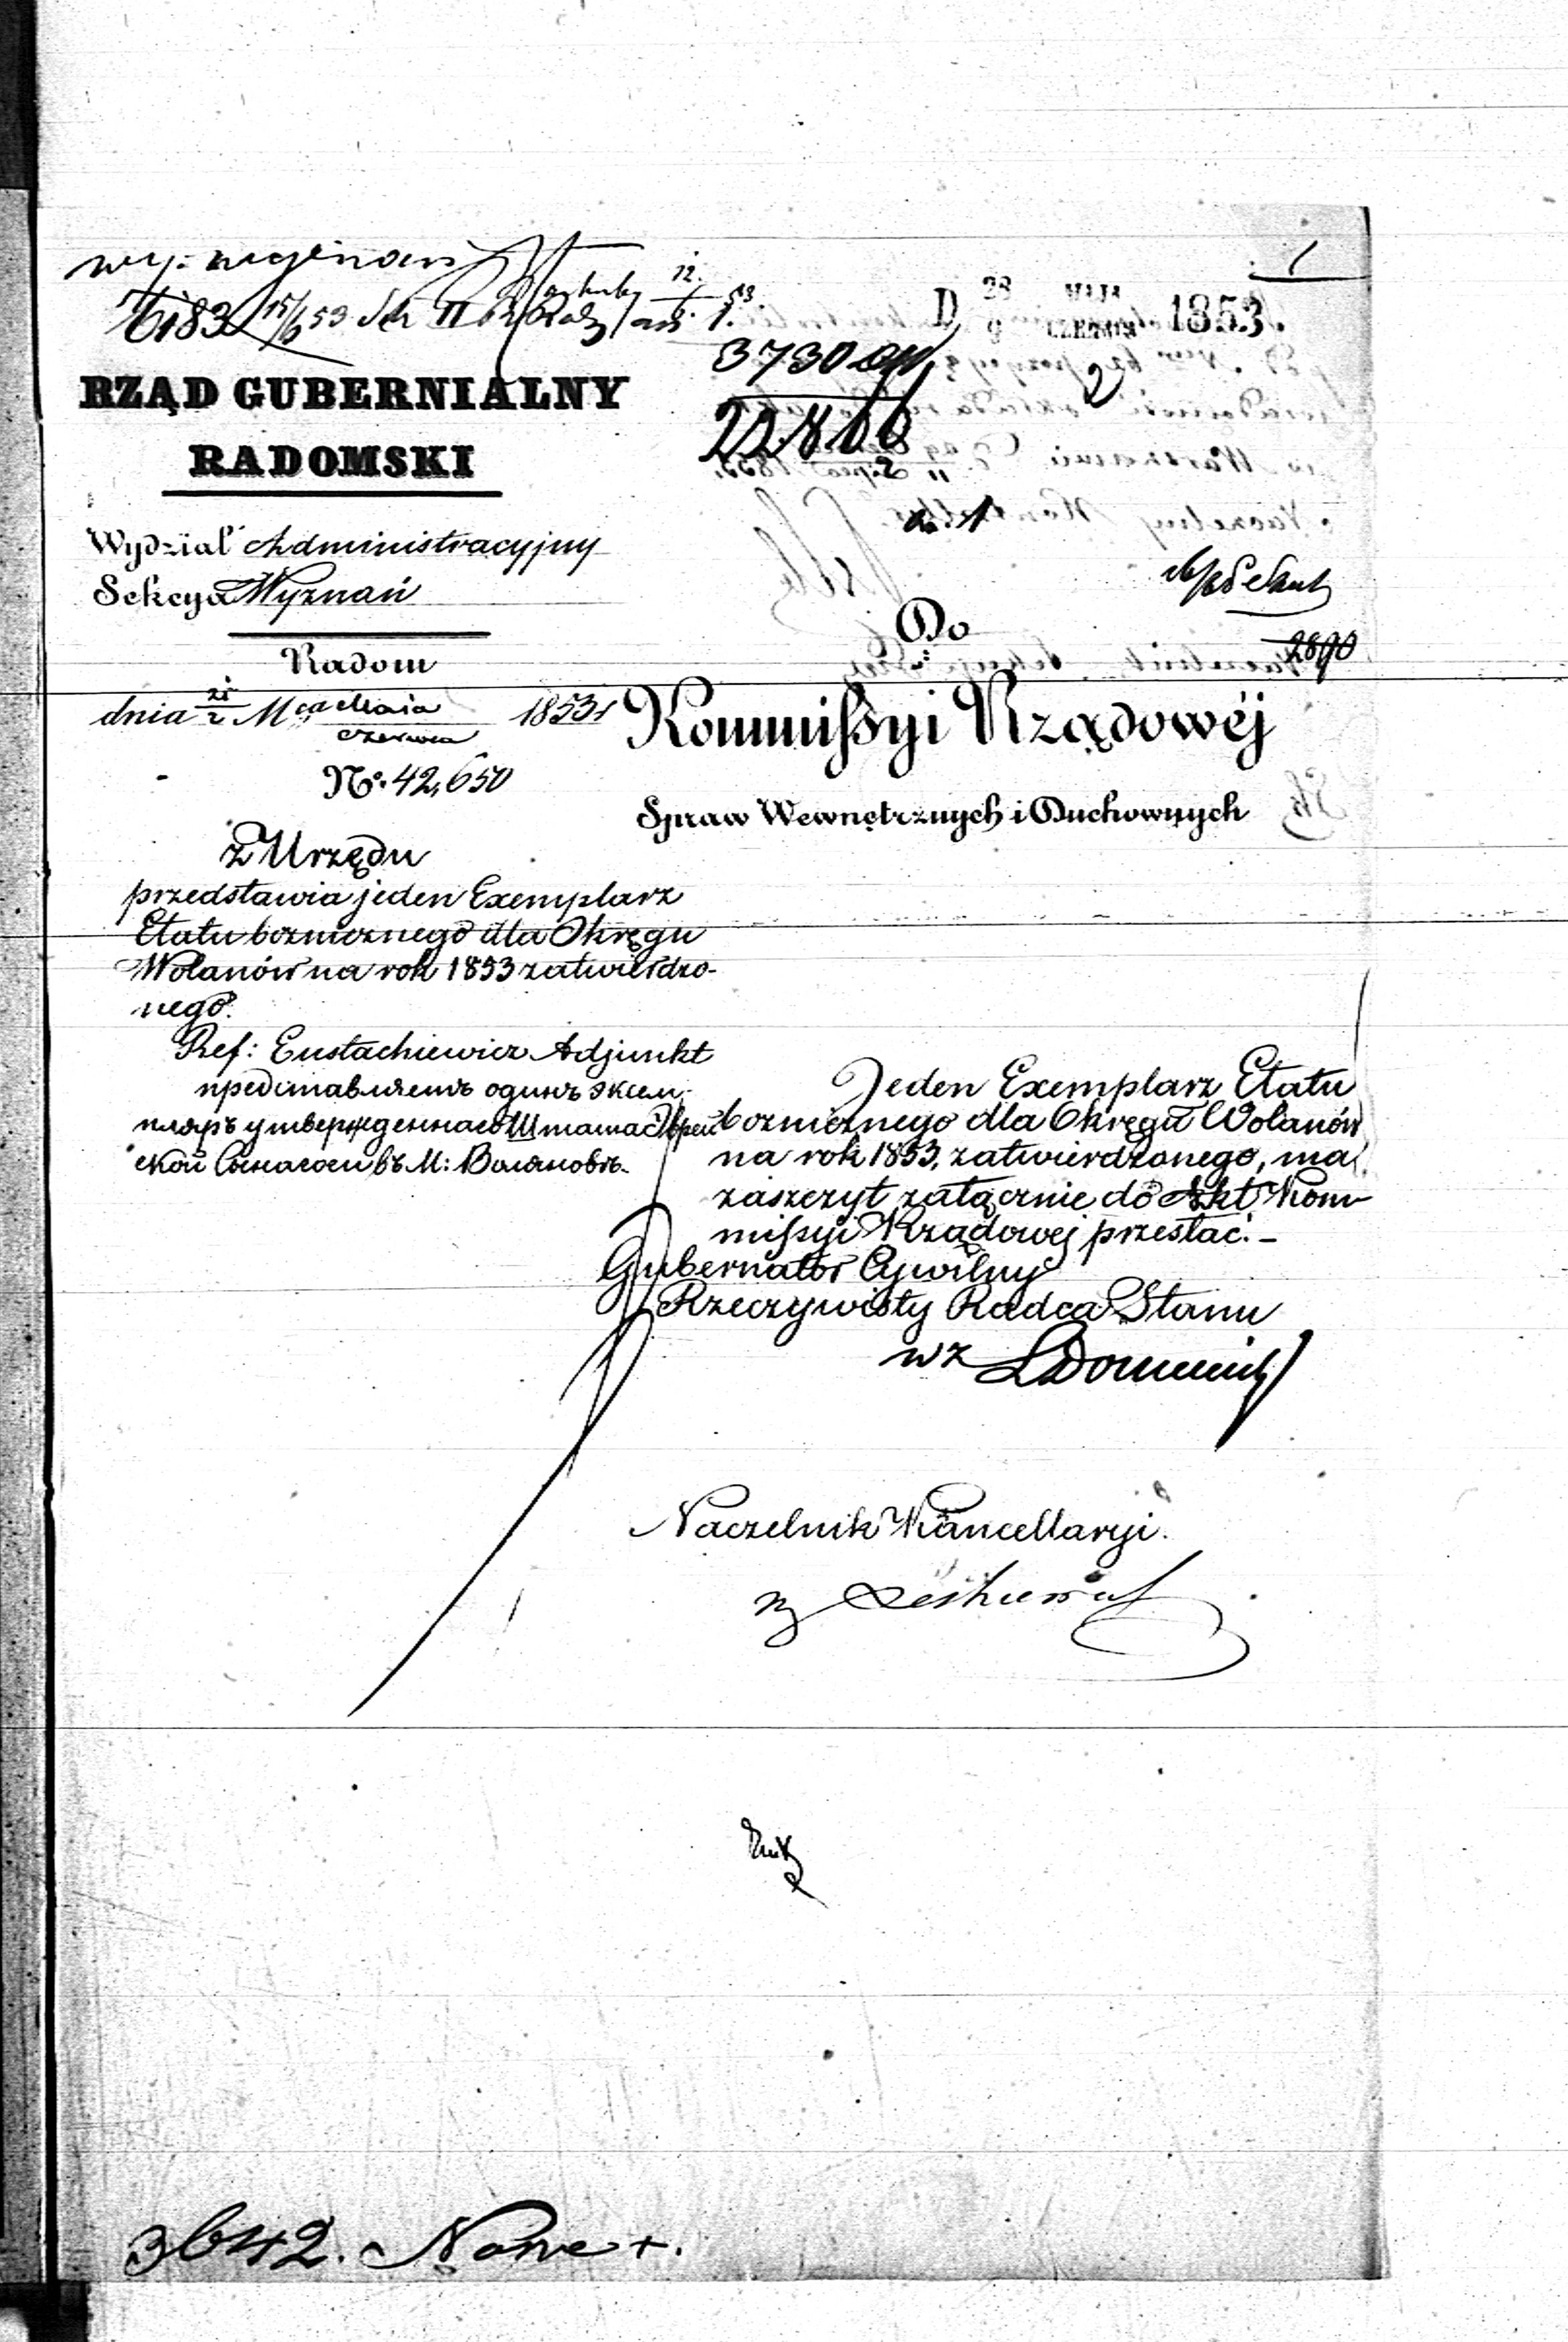 1
D 28 MAJA 1853.
9 CZERWCA
3730
22866
2
2890
RZĄD GUBERNIALNY
RADOMSKI
Wydział Administracyjny
Sekcya Wyznań
Radom
dnia 21/2 Mca Maja/Czerwca 1853 r
No. 42,650
Do
Kommissyi Rządowéj
Spraw Wewnętrznych i Duchownych
Z Urzędu
przedstawia jeden Exemplarz
Etatu bożnicznego dla Okręgu
Wolanów na rok 1853 zatwierdzo-
nego.
Ref: Eustachiewicz Adjunkt
представляетъ одинъ экзем-
пляръ утвержденнаго Штата Еврей-
ской Синагоги въ М: Воляновъ.
Jeden Exemplarz Etatu
bożnicznego dla Okręgu Wolanów
na rok 1853, zatwierdzonego, ma
zaszczyt załącznie do Akt Kom-
missyi Rządowej przesłać. -
Gubernator Cywilny
Rzeczywisty Radca Stanu
wz
Naczelnik Kancellaryi.
3642. Nowe +.